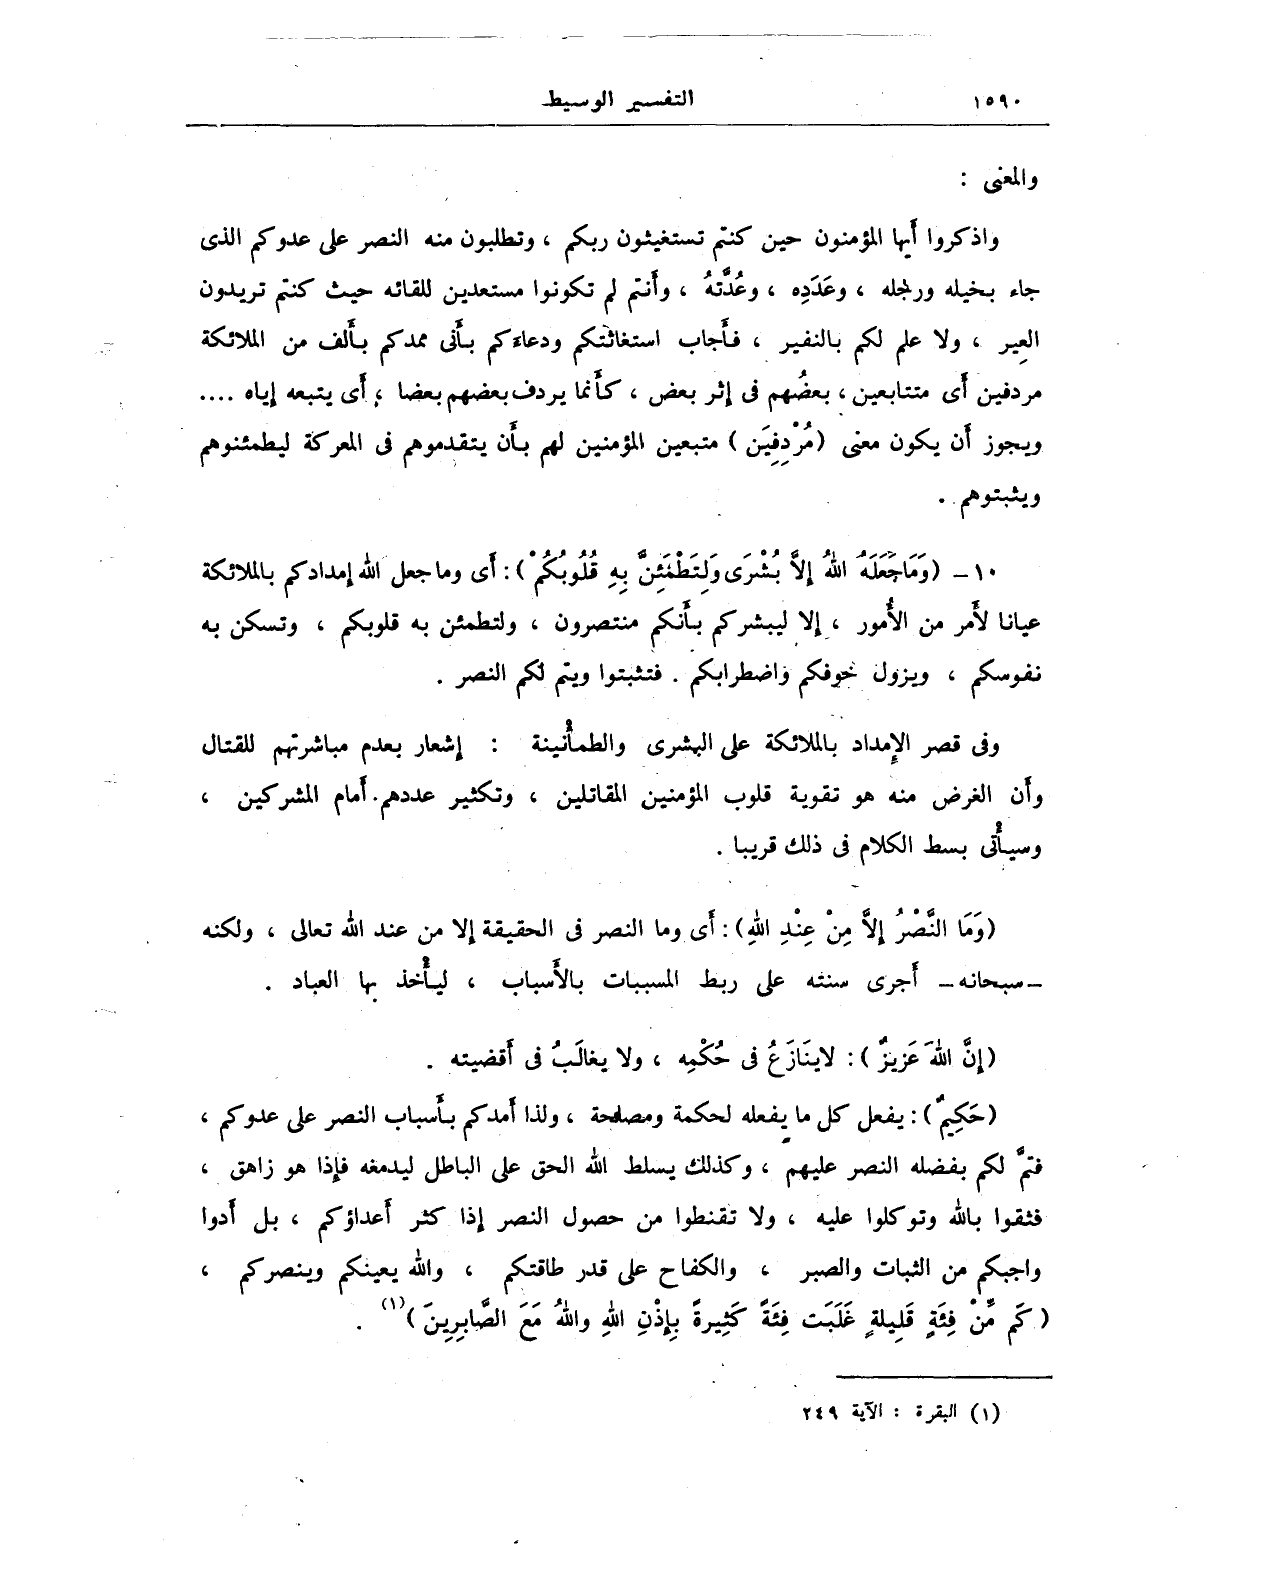 ١٥٩٠
التفسير الوسيط
والمعنى :
واذكروا أيها المؤمنون حين كنتم تستغيثون ربكم ، وتطلبون منه النصر على عدوكم الذى
جاء بخيله ورجله ، وعَدَدِه ، وعُدَّتهُ ، وأنتم لم تكونوا مستعدين للقائه حيث كنتم تريدون
العِير ، ولا علم لكم بالنفير ، فأجاب استغاثتكم ودعاءكم بأنى ممدكم بألف من الملائكة
مردفين أى متتابعين ، بعضُهم فى إثر بعض ، كأنما يردف بعضهم بعضا ، أى يتبعه إياه ....
ويجوز أن يكون معنى (مُرْدِفِيَن) متبعين المؤمنين لهم بأن يتقدموهم فى المعركة ليطمئنوهم
ويثبتوهم .
١٠ ـ (وَمَا جَعَلَهُ اللهُ إِلاَّ بُشْرَى وَلِتَطْمَئِنَّ بِهِ قُلُوبُكُمْ) : أى وما جعل الله إمدادكم بالملائكة
عيانا لأَمر من الأُمور ، إلا ليبشركم بأنكم منتصرون ، ولتطمئن به قلوبكم ، وتسكن به
نفوسكم ، ويزول خوفكم واضطرابكم . فتثبتوا ويتم لكم النصر .
وفى قصر الإمداد بالملائكة على البشرى والطمأنينة : إشعار بعدم مباشرتهم للقتال
وأن الغرض منه هو تقوية قلوب المؤمنين المقاتلين ، وتكثير عددهم أمام المشركين ،
وسيأتى بسط الكلام فى ذلك قريبا .
(وَمَا النَّصْرُ إِلاَّ مِنْ عِنْدِ اللهِ) : أى وما النصر فى الحقيقة إلا من عند الله تعالى ، ولكنه
ـ سبحانه ـ أجرى سنته على ربط المسببات بالأسباب ، ليأخذ بها العباد .
(إِنَّ اللهَ عَزِيزٌ) : لاينَازَعُ فى حُكْمِه ، ولا يغالَبُ فى أقضيته .
(حَكِيمٌ) : يفعل كل ما يفعله لحكمة ومصلحة ، ولذا أمدكم بأسباب النصر على عدوكم ،
فتمَّ لكم بفضله النصر عليهم ، وكذلك يسلط الله الحق على الباطل ليدمغه فإذا هو زاهق ،
فثقوا بالله وتوكلوا عليه ، ولا تقنطوا من حصول النصر إذا كثر أعداؤكم ، بل أدوا
واجبكم من الثبات والصبر ، والكفاح على قدر طاقتكم ، والله يعينكم وينصركم ،
(كَم مِّنْ فِئَةٍ قَلِيلةٍ غَلَبَت فِئَةً كَثِيرةً بِإِذْنِ اللهِ واللهُ مَعَ الصَّابِرِينَ)(١) .
(١) البقرة : الآية ٢٤٩